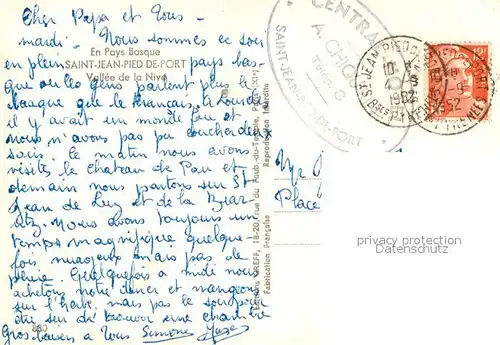 Cher Papa et Tous -
mardi - Nous sommes ce soir
En Pays Basque
en plein pays bas-
SAINT-JEAN-PIED-DE-PORT
Vallée de la Nive
que où les gens parlent plus le
basque que le français, à Lourdes
il y avait un monde fou et
nous n'avons pas pu coucher deux
soirs. Ce matin nous avons
visités le château de Pau et
demain nous partons sur St
Jean de Luz et de là Biar-
ritz. Nous avons toujours un
temps magnifique quelque-
fois nuageux mais pas de
pluie. Quelquefois à midi nous
achetons notre diner et mangeons
sur l'herbe. mais pas le soir pour
être sur de trouver une chambre
Gros baisers à Tous Simone
880
CENTRAL
A. CHIQ
Téléph. 0
SAINT-JEAN-PIED-DE-PORT
ST JEAN PIED DE PORT
1952
Bses PYRENEES
Mr
Place
Editions GREFF, 18-20, rue du Faub.-du-Temple, Paris (XIe)
Fabrication Française Reproduction Interdite
privacy protection
www.delcampe.net